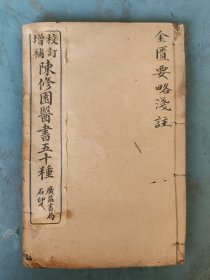 金匱要略淺註
校訂
增補
陳修園醫書五十種
廣益書局
石印